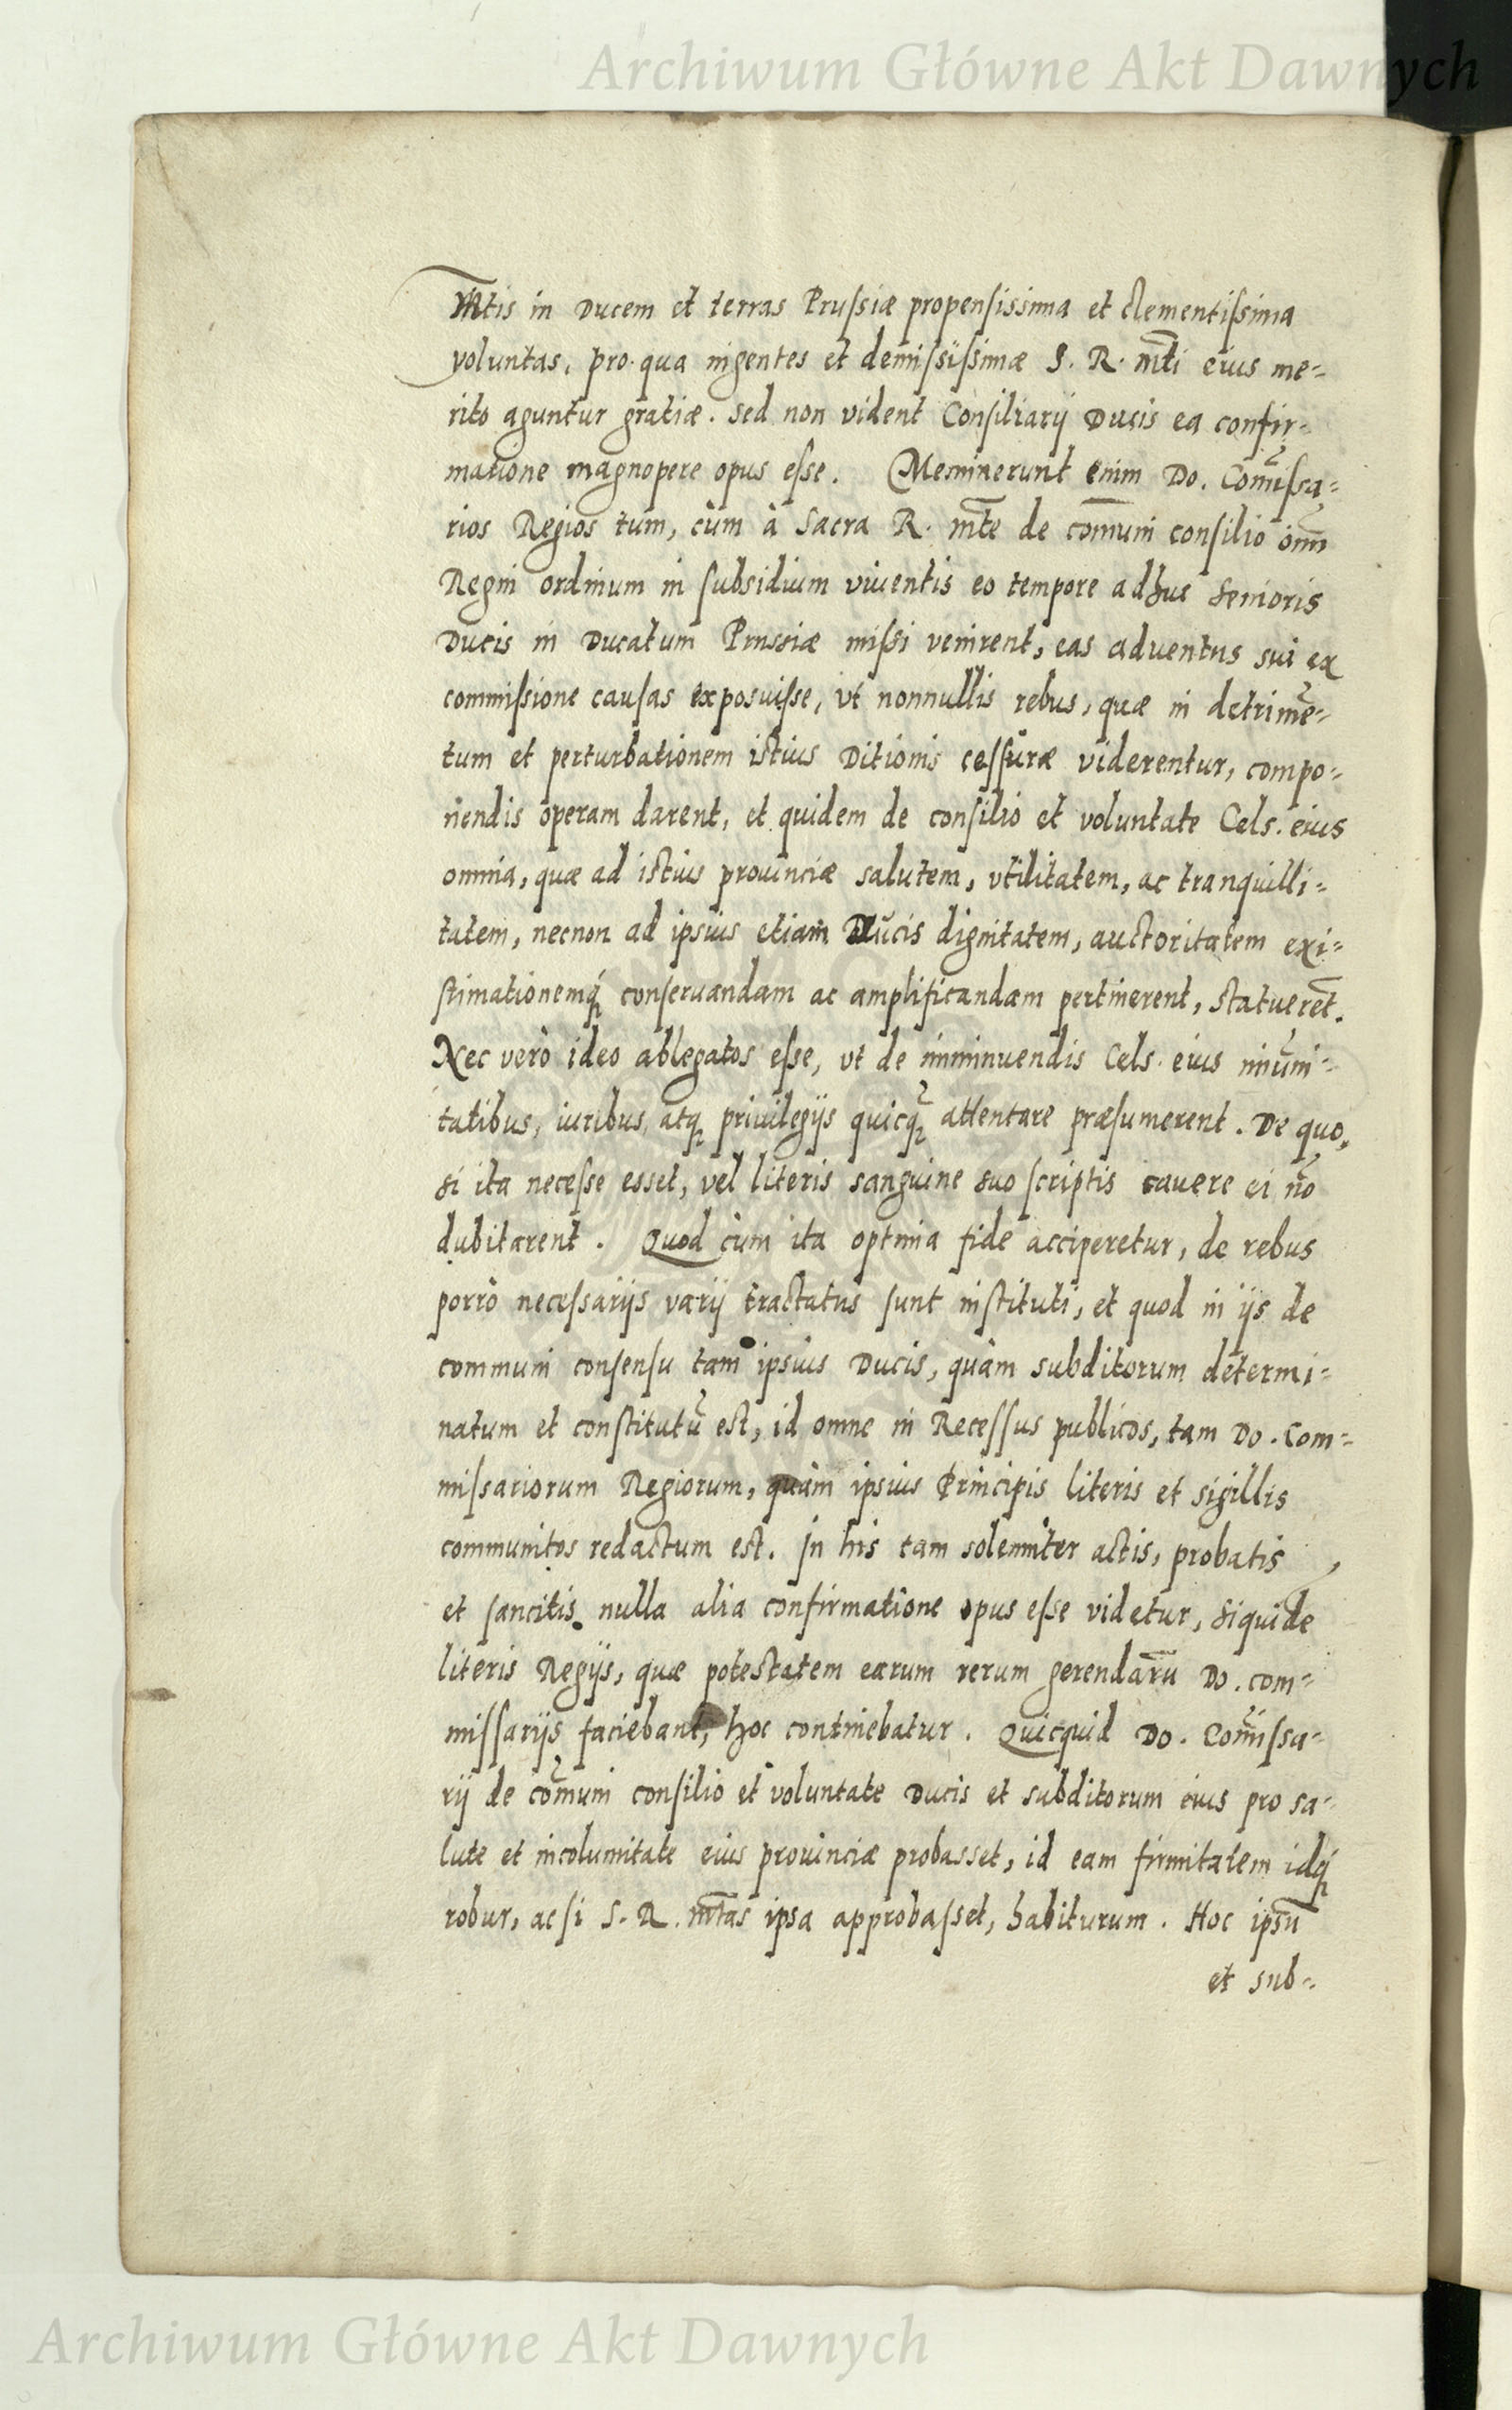 Archiwum Główne Akt Dawnych
Mtis in Ducem et terras Prussiæ propensissima et clementissima
voluntas, pro qua ingentes et demississimæ S. R. mti eius me-
rito aguntur gratiæ. Sed non vident Consiliarij Ducis ea confir-
matione magnopere opus esse. Meminerunt enim Do. Comissa-
rios Regios tum, cùm à Sacra R. mte de comuni consilio omn
Regni ordinum in subsidium viuentis eo tempore adhuc Senioris
Ducis in Ducatum Prussiæ missi venirent, eas aduentus sui ex
commissione causas exposuisse, vt nonnullis rebus, quæ in detrimē-
tum et perturbationem istius Ditionis cessuræ viderentur, compo-
nendis operam darent, et quidem de consilio et voluntate Cels. eius
omnia, quæ ad istius prouinciæ salutem, vtilitatem, ac tranquilli-
tatem, necnon ad ipsius etiam Ducis dignitatem, auctoritatem exi-
stimationemq́ conseruandam ac amplificandam pertinerent, statuerēt.
Nec verò ideo ablegatos esse, vt de imminuendis Cels. eius imūni-
tatibus, iuribus, atq priuilegijs quicq̄ attentare præsumerent. De quo,
si ita necesse esset, vel literis sanguine suo scriptis cauere ei nō
dubitarent. Quod cùm ita optima fide acciperetur, de rebus
porrò necessarijs varij tractatus sunt instituti, et quod in ijs de
communi consensu tam ipsius Ducis, quàm subditorum determi-
natum et constitutū est, id omne in Recessus publicos, tam Do. Com-
missariorum Regiorum, quàm ipsius Principis literis et sigillis
communitos redactum est. In his tam solenniter actis, probatis,
et sancitis nulla alia confirmatione opus esse videtur, siquidē
literis Regijs, quæ potestatem earum rerum gerendarū Do. com-
missarijs faciebant, hoc continebatur. Quicquid Do. Comissa-
rij de comuni consilio et voluntate Ducis et subditorum eius pro sa-
lute et incolumitate eius prouinciæ probasset, id eam firmitatem idq́
robur, ac si S. R. mtas ipsa approbasset, habiturum. Hoc ipsū
et sub-
Archiwum Główne Akt Dawnych